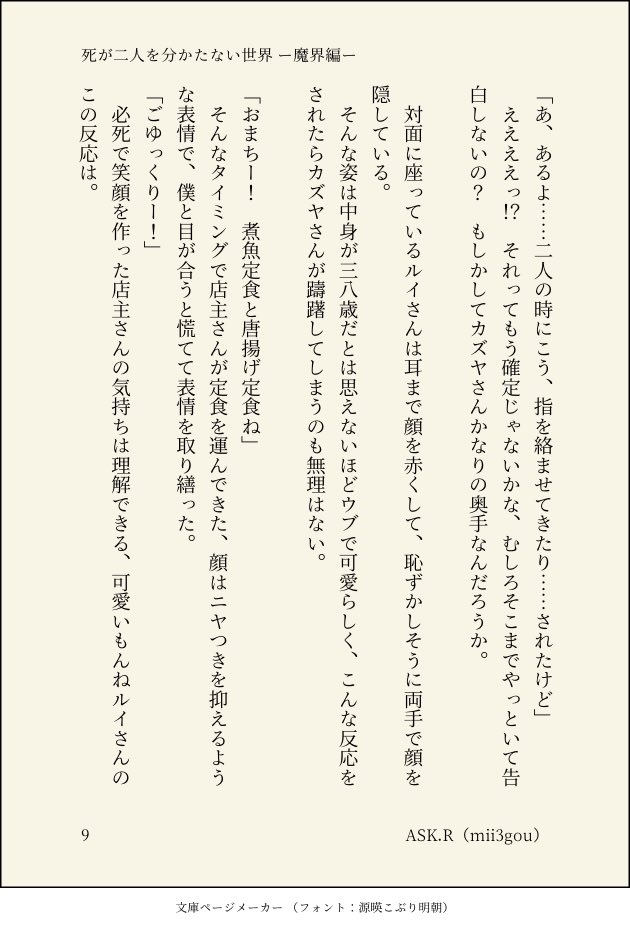 死が二人を分かたない世界 ー魔界編ー
「あ、あるよ……二人の時にこう、指を絡ませてきたり……されたけど」
　ええええっ!?　それってもう確定じゃないかな、むしろそこまでやっといて告
白しないの？　もしかしてカズヤさんかなりの奥手なんだろうか。
　対面に座っているルイさんは耳まで顔を赤くして、恥ずかしそうに両手で顔を
隠している。
　そんな姿は中身が三八歳だとは思えないほどウブで可愛らしく、こんな反応を
されたらカズヤさんが躊躇してしまうのも無理はない。
「おまちー！　煮魚定食と唐揚げ定食ね」
　そんなタイミングで店主さんが定食を運んできた、顔はニヤつきを抑えるよう
な表情で、僕と目が合うと慌てて表情を取り繕った。
「ごゆっくりー！」
　必死で笑顔を作った店主さんの気持ちは理解できる、可愛いもんねルイさんの
この反応は。
9
ASK.R（mii3gou）
文庫ページメーカー （フォント：源暎こぶり明朝）